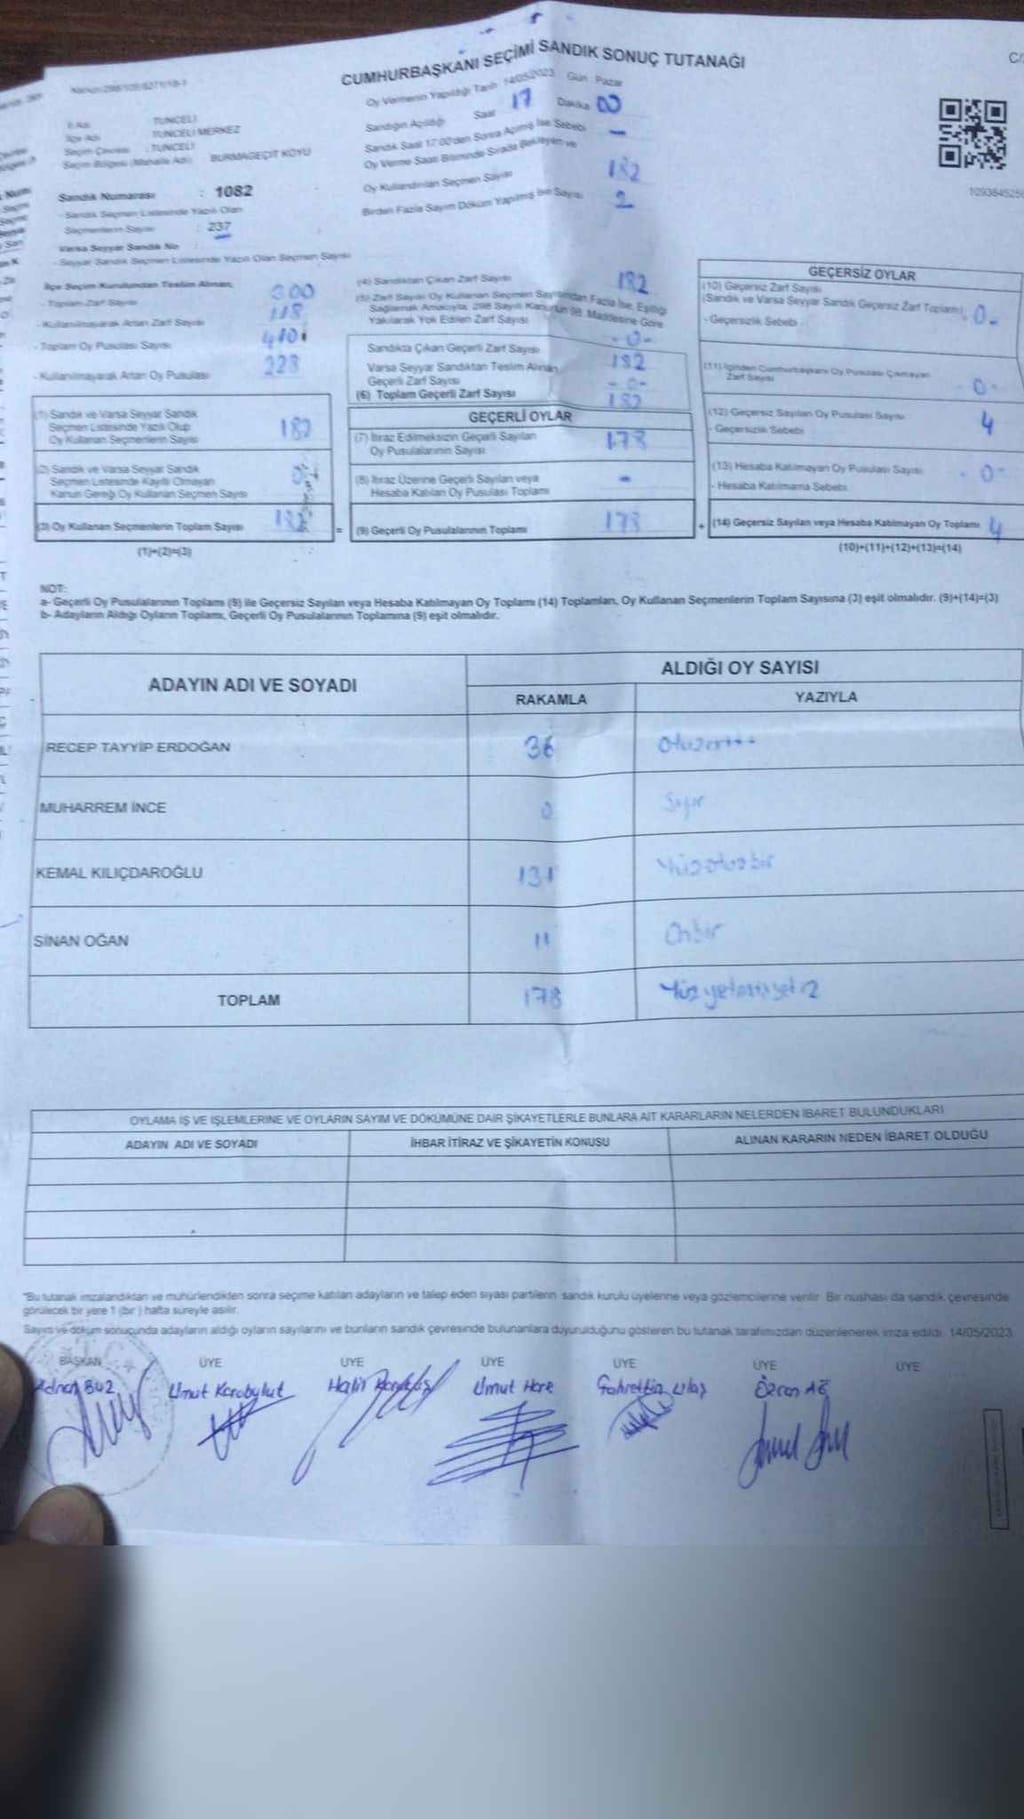 CUMHURBAŞKANI SEÇİMİ SANDIK SONUÇ TUTANAĞI
Oy Vermenin Yapıldığı Tarih 14/05/2023 Gün Pazar
İl Adı TUNCELİ
İlçe Adı TUNCELİ MERKEZ
Seçim Çevresi : TUNCELİ
Seçim Bölgesi (Mahalle Adı) BURMAGEÇİT KÖYÜ
Sandığın Açıldığı Saat 17 Dakika 00
Sandık Saat 17:00'den Sonra Açılmış İse Sebebi -
Oy Verme Saati Bitiminde Sırada Bekleyen ve
Oy Kullandırılan Seçmen Sayısı 182
Birden Fazla Sayım Döküm Yapılmış İse Sayısı 2
Sandık Numarası : 1082
- Sandık Seçmen Listesinde Yazılı Olan
Seçmenlerin Sayısı : 237
Varsa Seyyar Sandık No :
- Seyyar Sandık Seçmen Listesinde Yazılı Olan Seçmen Sayısı
İlçe Seçim Kurulundan Teslim Alınan;
- Toplam Zarf Sayısı 300
- Kullanılmayarak Artan Zarf Sayısı 118
- Toplam Oy Pusulası Sayısı
- Kullanılmayarak Artan Oy Pusulası 228
(1) Sandık ve Varsa Seyyar Sandık
Seçmen Listesinde Yazılı Olup
Oy Kullanan Seçmenlerin Sayısı 182
(2) Sandık ve Varsa Seyyar Sandık
Seçmen Listesinde Kayıtlı Olmayan
Kanun Gereği Oy Kullanan Seçmen Sayısı
(3) Oy Kullanan Seçmenlerin Toplam Sayısı 182
(1)+(2)=(3)
(4) Sandıktan Çıkan Zarf Sayısı 182
(5) Zarf Sayısı Oy Kullanan Seçmen Sayısından Fazla İse, Eşitliği
Sağlamak Amacıyla, 298 Sayılı Kanun'un 98. Maddesine Göre
Yakılarak Yok Edilen Zarf Sayısı -0-
Sandıkta Çıkan Geçerli Zarf Sayısı 182
Varsa Seyyar Sandıktan Teslim Alınan
Geçerli Zarf Sayısı -0-
(6) Toplam Geçerli Zarf Sayısı 182
GEÇERLİ OYLAR
(7) İtiraz Edilmeksizin Geçerli Sayılan
Oy Pusulalarının Sayısı 178
(8) İtiraz Üzerine Geçerli Sayılan veya
Hesaba Katılan Oy Pusulası Toplamı -
= (9) Geçerli Oy Pusulalarının Toplamı 178
GEÇERSİZ OYLAR
(10) Geçersiz Zarf Sayısı
(Sandık ve Varsa Seyyar Sandık Geçersiz Zarf Toplamı) -0-
- Geçersizlik Sebebi
(11) İçinden Cumhurbaşkanı Oy Pusulası Çıkmayan
Zarf Sayısı -0-
(12) Geçersiz Sayılan Oy Pusulası Sayısı 4
- Geçersizlik Sebebi
(13) Hesaba Katılmayan Oy Pusulası Sayısı -0-
- Hesaba Katılmama Sebebi
+ (14) Geçersiz Sayılan veya Hesaba Katılmayan Oy Toplamı 4
(10)+(11)+(12)+(13)=(14)
NOT:
a- Geçerli Oy Pusulalarının Toplamı (9) ile Geçersiz Sayılan veya Hesaba Katılmayan Oy Toplamı (14) Toplamları, Oy Kullanan Seçmenlerin Toplam Sayısına (3) eşit olmalıdır. (9)+(14)=(3)
b- Adayların Aldığı Oyların Toplamı, Geçerli Oy Pusulalarının Toplamına (9) eşit olmalıdır.
ADAYIN ADI VE SOYADI
ALDIĞI OY SAYISI
RAKAMLA YAZIYLA
RECEP TAYYİP ERDOĞAN 36
MUHARREM İNCE 0 Sıfır
KEMAL KILIÇDAROĞLU 131 Yüzotuzbir
SİNAN OĞAN 11 Onbir
TOPLAM 178
OYLAMA İŞ VE İŞLEMLERİNE VE OYLARIN SAYIM VE DÖKÜMÜNE DAİR ŞİKAYETLERLE BUNLARA AİT KARARLARIN NELERDEN İBARET BULUNDUKLARI
ADAYIN ADI VE SOYADI İHBAR İTİRAZ VE ŞİKAYETİN KONUSU ALINAN KARARIN NEDEN İBARET OLDUĞU
*Bu tutanak imzalandıktan ve mühürlendikten sonra seçime katılan adayların ve talep eden siyasi partilerin sandık kurulu üyelerine veya gözlemcilerine verilir. Bir nüshası da sandık çevresinde
görülecek bir yere 1 (bir) hafta süreyle asılır.
Sayım ve döküm sonucunda adayların aldığı oyların sayılarını ve bunların sandık çevresinde bulunanlara duyurulduğunu gösteren bu tutanak tarafımızdan düzenlenerek imza edildi. 14/05/2023
BAŞKAN ÜYE ÜYE ÜYE ÜYE ÜYE ÜYE
Adnan Buz Umut Karabulut Halil Umut Hare Fahrettin Ulaş Özcan Ağ